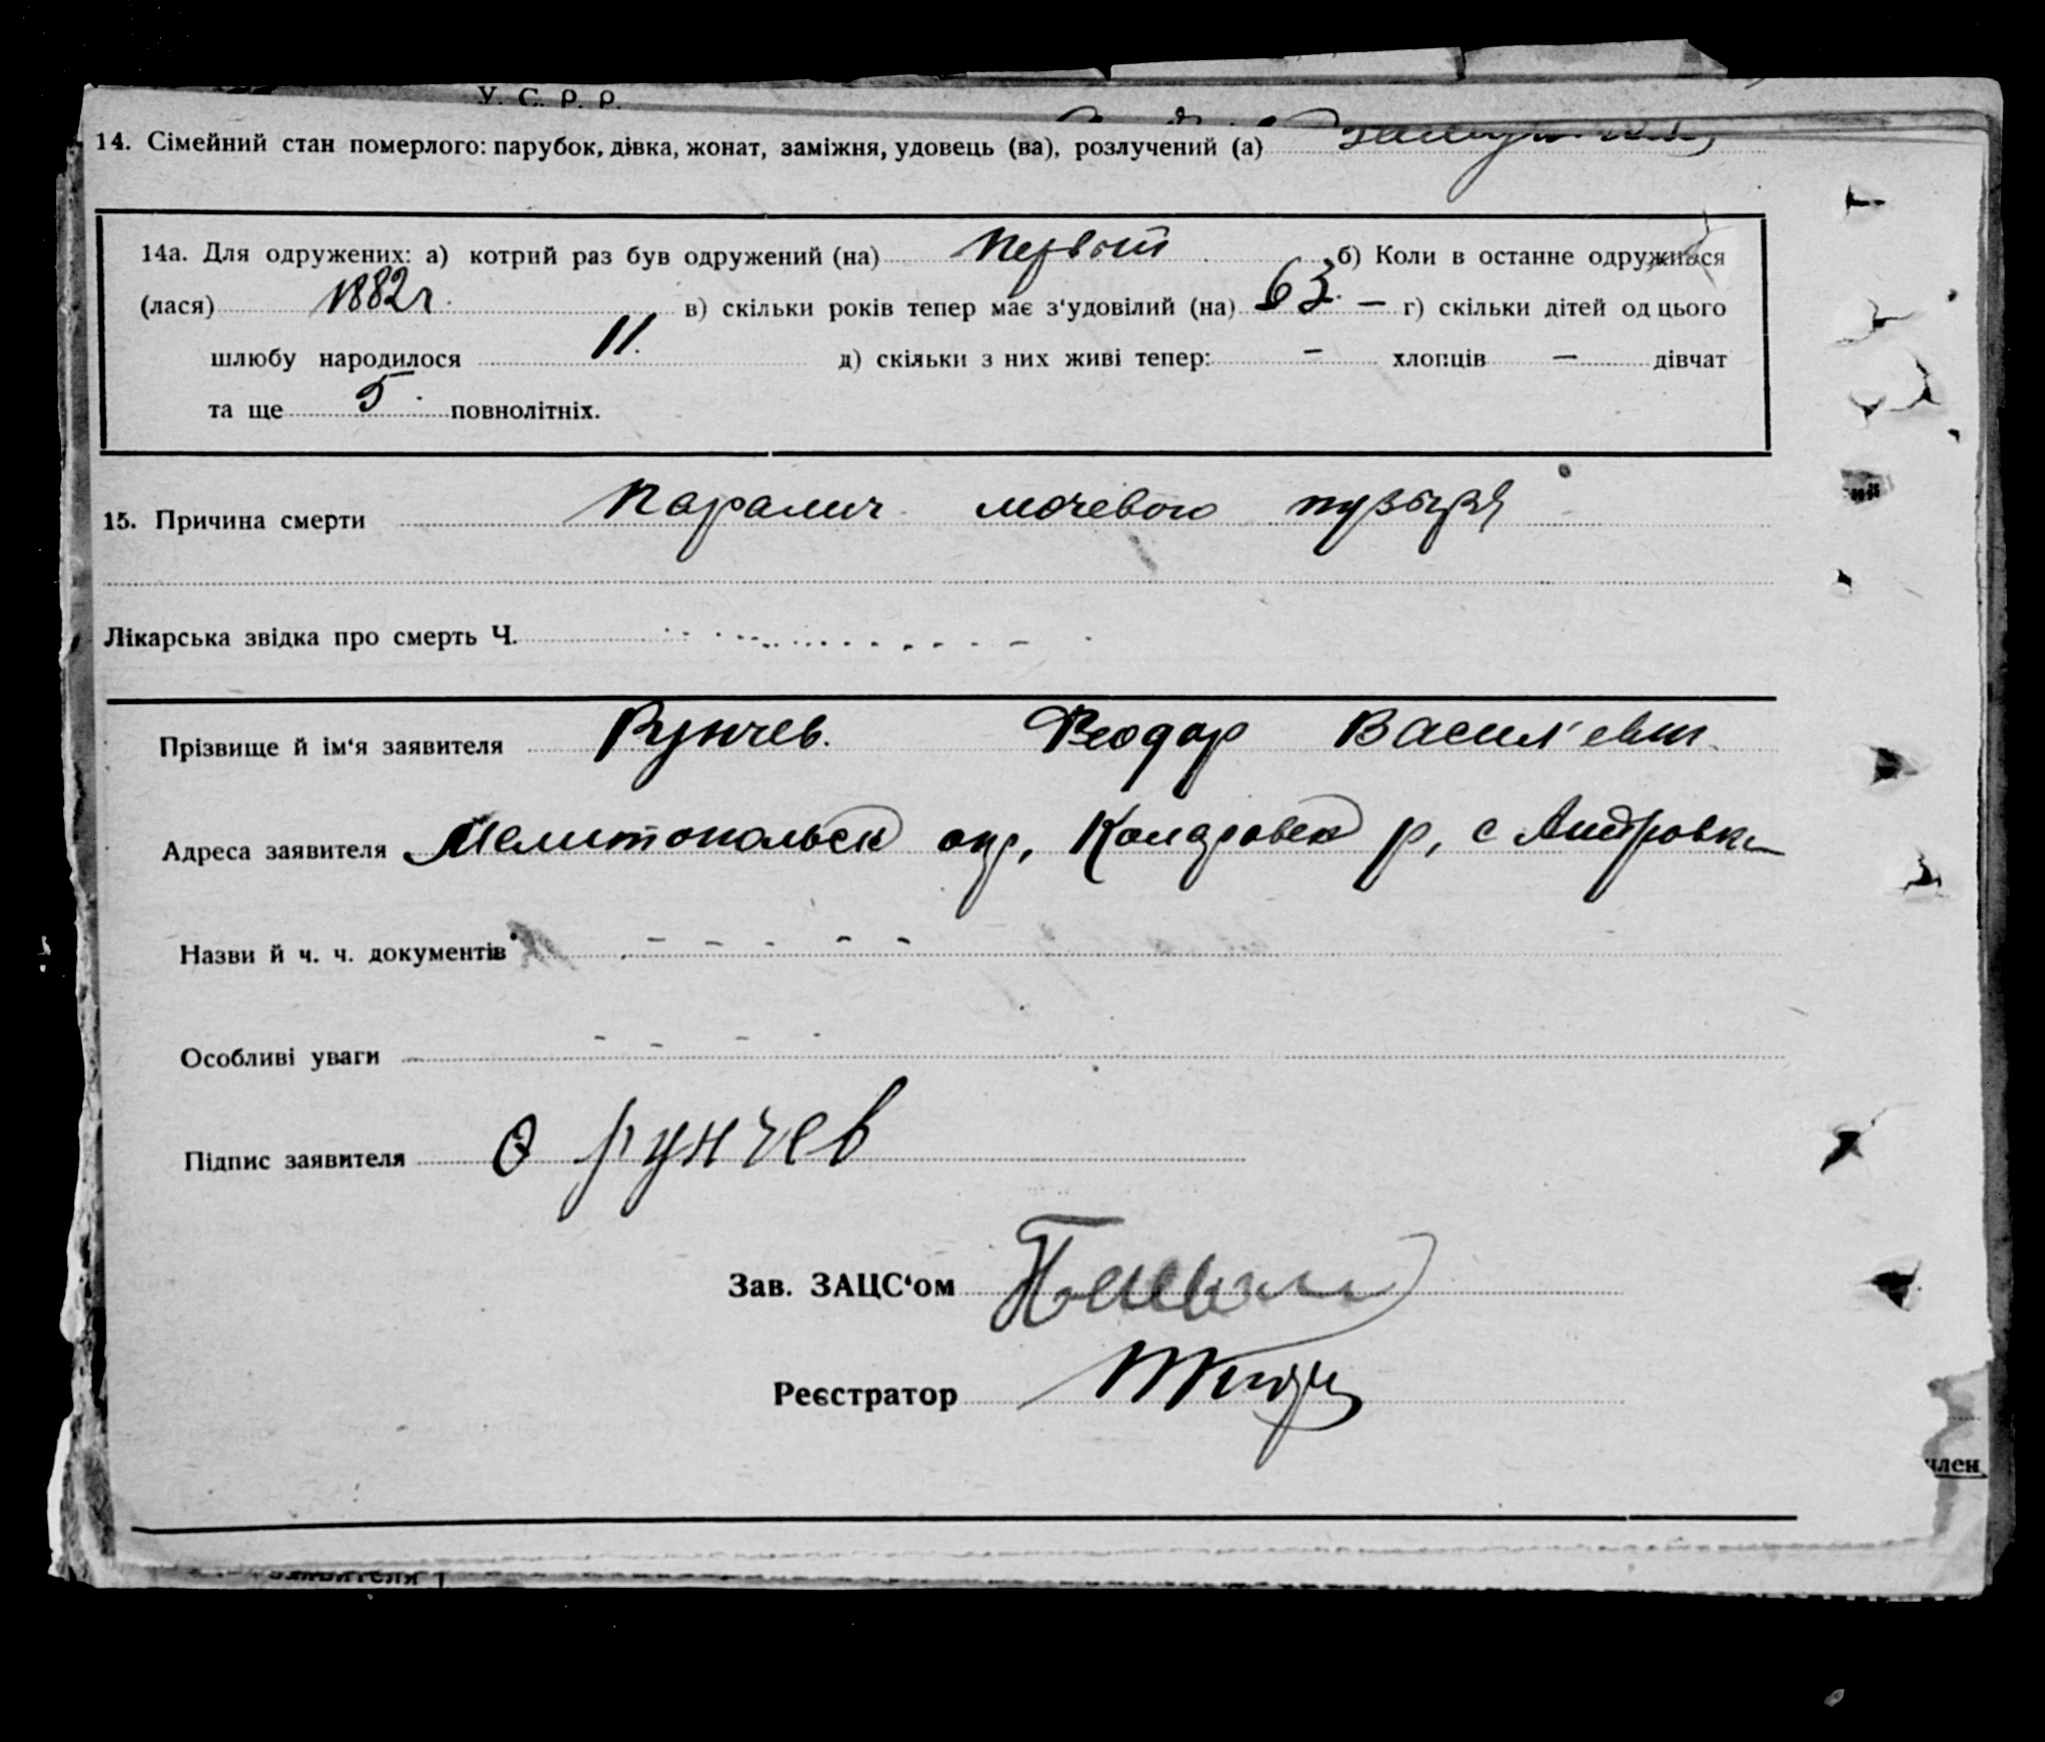 У. С. Р. Р.
14. Сімейний стан померлого: парубок, дівка, жонат, заміжня, удовець (ва), розлучений (а)
14а. Для одружених: а) котрий раз був одружений (на) первый б) Коли в останне одружився
(лася) 1882 г. в) скільки років тепер має з‘удовілий (на) 63. — г) скільки дітей од цього
шлюбу народилося 11. д) скільки з них живі тепер: — хлопців — дівчат
та ще 5 повнолітніх.
15. Причина смерти Паралич мочевого пузыря
Лікарська звідка про смерть Ч.
Прізвище й ім‘я заявителя Рунчев. Феодор Васильевич
Адреса заявителя Мелитопольск окр, р, с
Назви й ч. ч. документів - - - - -
Особливі уваги - - - -
Підпис заявителя Ф Рунчев
Зав. ЗАЦС‘ом
Реєстратор
член
заявителя